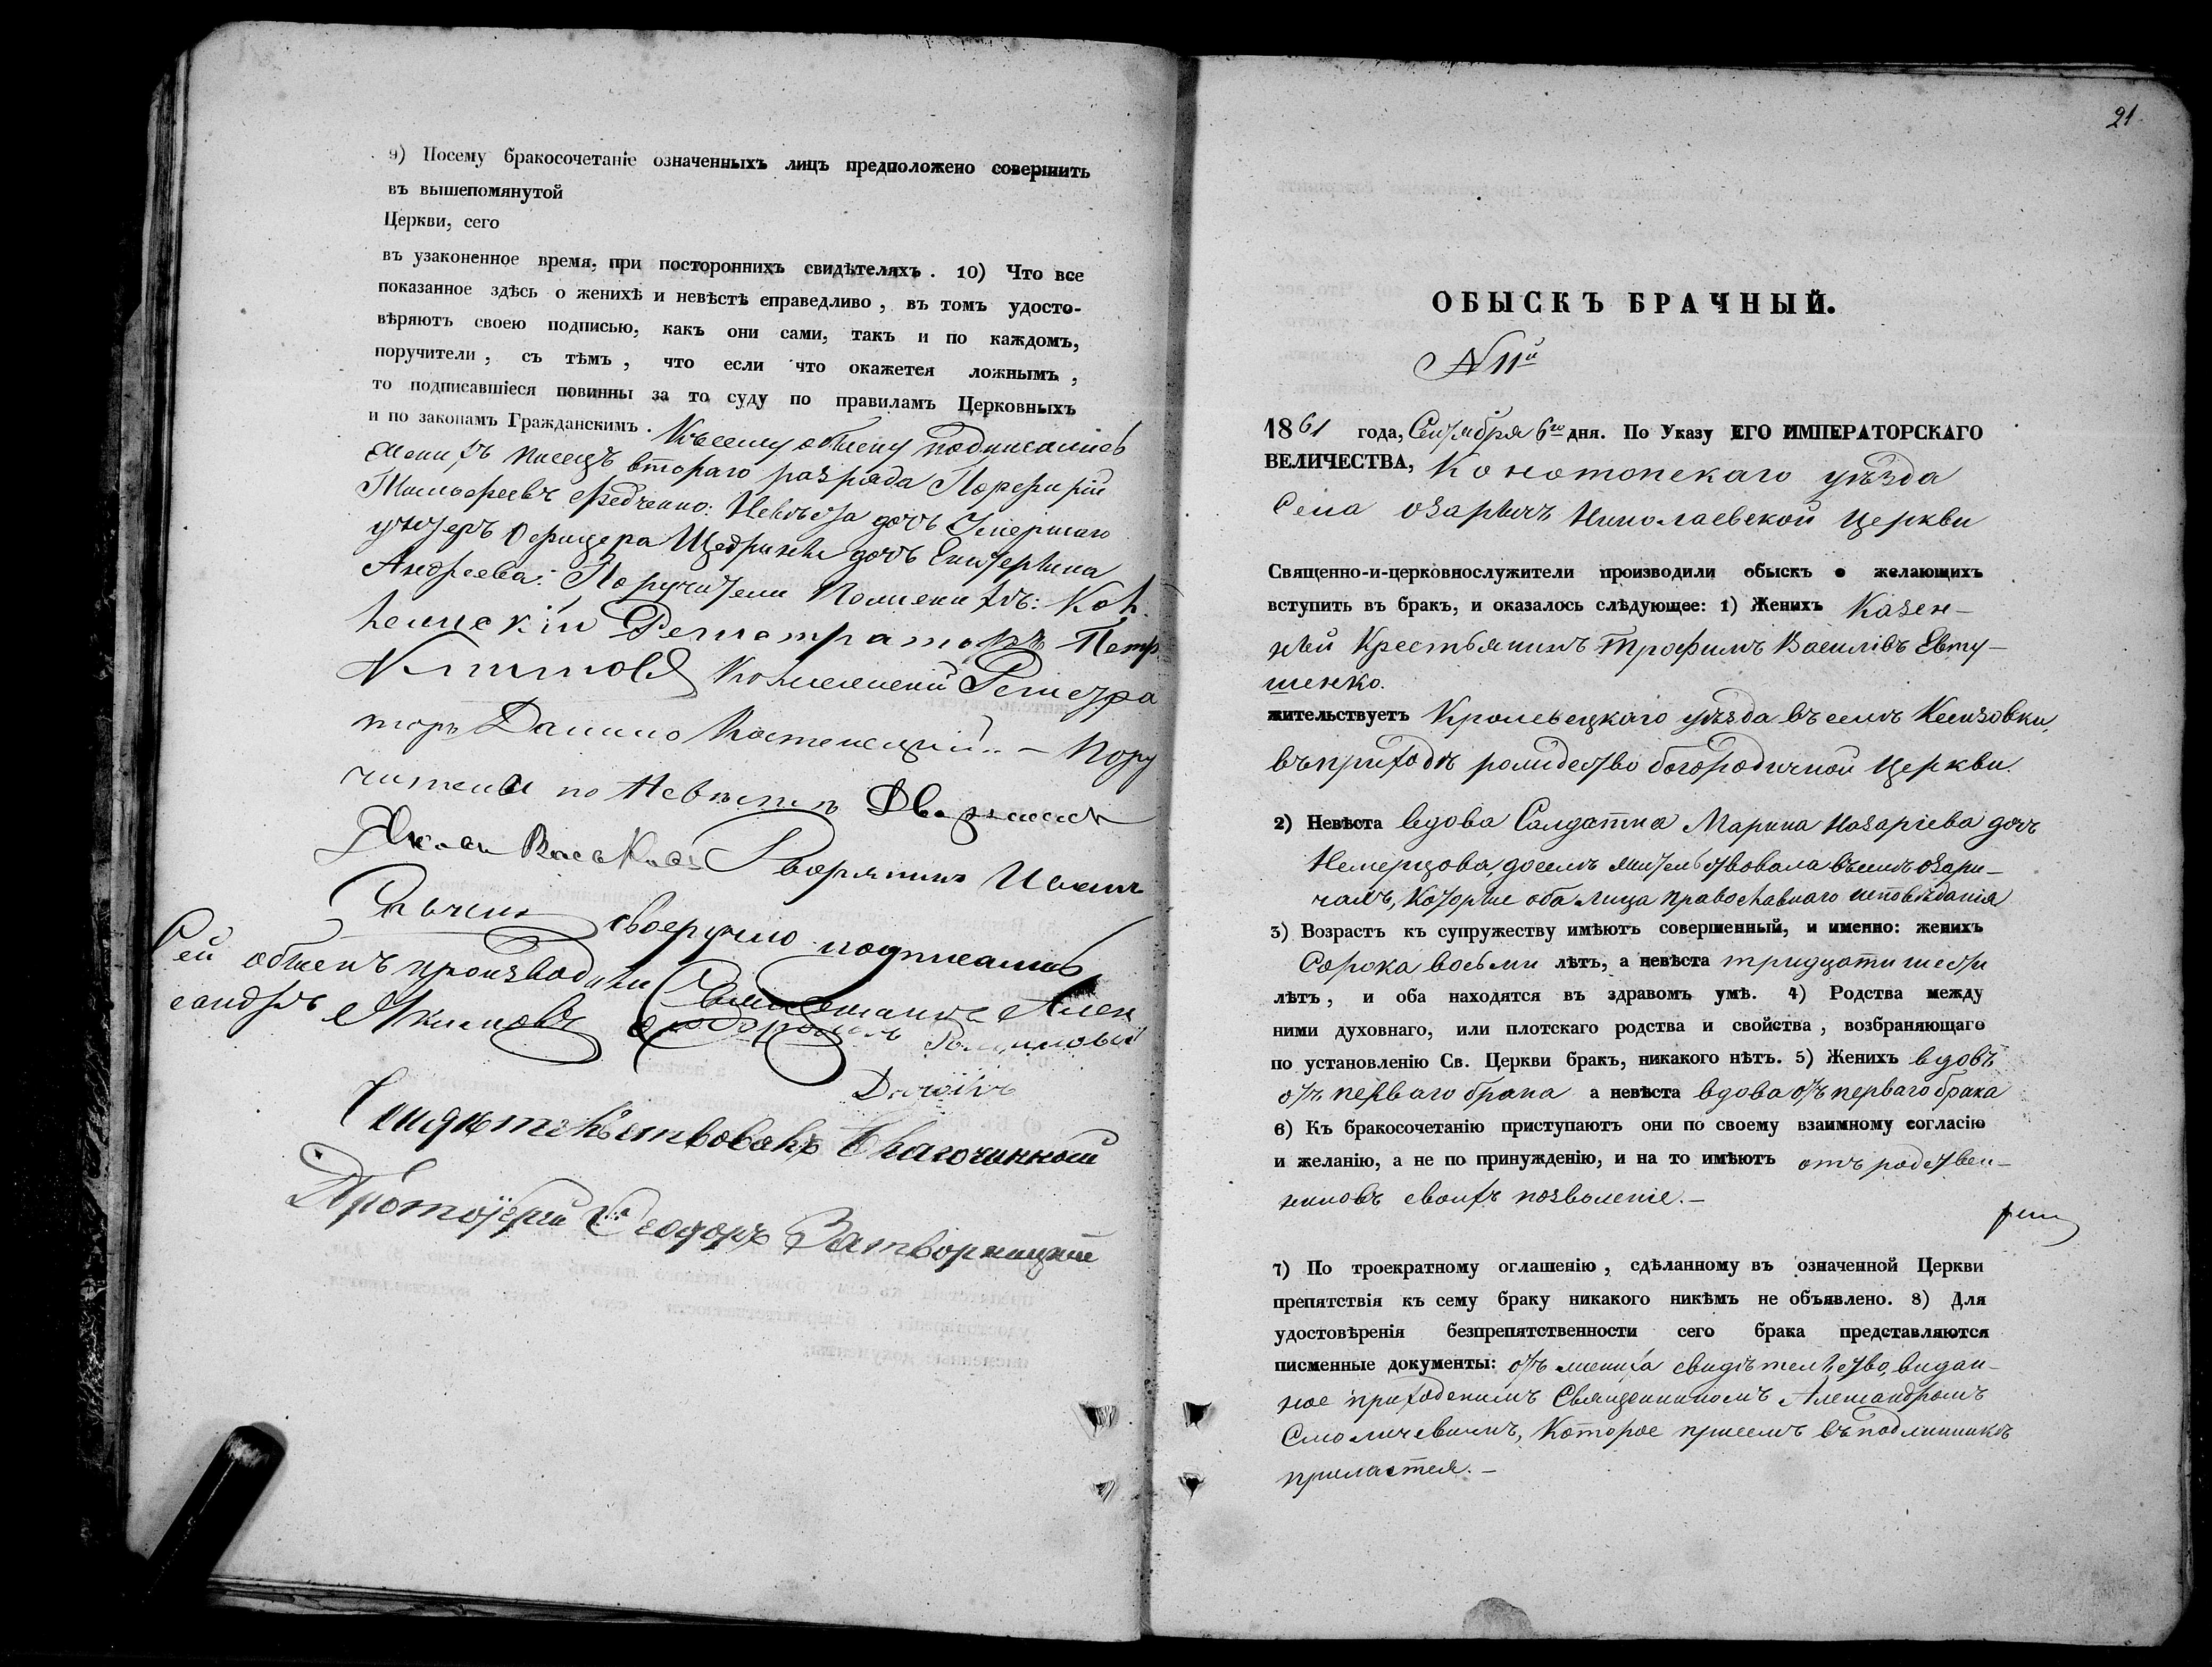 9) Посему бракосочетаніе означенныхъ лицъ предположено совершить
въ вышепомянутой
Церкви, сего
въ узаконенное время, при постороннихъ свидѣтеляхъ. 10) Что все
показанное здѣсь о женихѣ и невѣстѣ справедливо, въ томъ удосто-
вѣряютъ своею подписью, какъ они сами, такъ и по каждомъ,
поручители, съ тѣмъ, что если что окажется ложнымъ,
то подписавшіеся повинны за то суду по правиламъ Церковныхъ
и по законамъ Гражданскимъ. Ксему обыску подписались
женихъ писецъ втораго разряда Порфирій
Федченко: Невѣста дочь Умершаго
унтеръ Офицера дочь Екатерина
Андреева: Поручители По женихѣ: Кол-
лежскій Регистраторъ Петръ
Коллежскій Регистра
торъ Данило Костенецкій.. - Пору
чители по Невѣстѣ Дворянинъ
Дворянинъ Иванъ
своеручно подписались
Сей обыскъ производили Священникъ Алек
сандръ
Свидѣтельствовалъ Благочинный
Протоіерей Феодоръ Затворницкій
21
ОБЫСКЪ БРАЧНЫЙ.
N 11й
1861 года, Сентября 6го дня. По Указу ЕГО ИМПЕРАТОРСКАГО
ВЕЛИЧЕСТВА, Конотопскаго уѣзда
Села Озаричъ Николаевской Церкви
Священно-и-церковнослужители производили обыскъ о желающихъ
вступить въ бракъ, и оказалось слѣдующее: 1) Женихъ Казен-
ный Крестьянинъ Трофимъ Василіевъ Евту-
шенко.
жительствуетъ Кролевецкаго уѣзда въ селѣ
въ приходѣ рождество богородичной Церкви.
2) Невѣста вдова Салдатка Марина Назаріева дочь
Немерцова, доселѣ жительствовала въ селѣ Озари-
чахъ, Которые оба лица православнаго исповѣданія
3) Возрастъ къ супружеству имѣютъ совершенный, и именно: женихъ
Сорока восьми лѣтъ, а невѣста тридцати шести
лѣтъ, и оба находятся въ здравомъ умѣ. 4) Родства между
ними духовнаго, или плотскаго родства и свойства, возбраняющаго
по установленію Св. Церкви бракъ, никакого нѣтъ. 5) Женихъ вдовъ
отъ перваго брака а невѣста вдова отъ перваго брака
6) Къ бракосочетанію приступаютъ они по своему взаимному согласію
и желанію, а не по принужденію, и на то имѣютъ отъ родствен-
никовъ своихъ позволеніе. -
7) По троекратному оглашенію, сдѣланному въ означенной Церкви
препятствія къ сему браку никакого никѣмъ не объявлено. 8) Для
удостовѣренія безпрепятственности сего брака представляются
писменные документы: отъ жениха свидѣтельство, видан-
ное приходскимъ Священникомъ Александромъ
Смоличевымъ, Которое присемъ въ подлинникѣ
прилагается. -